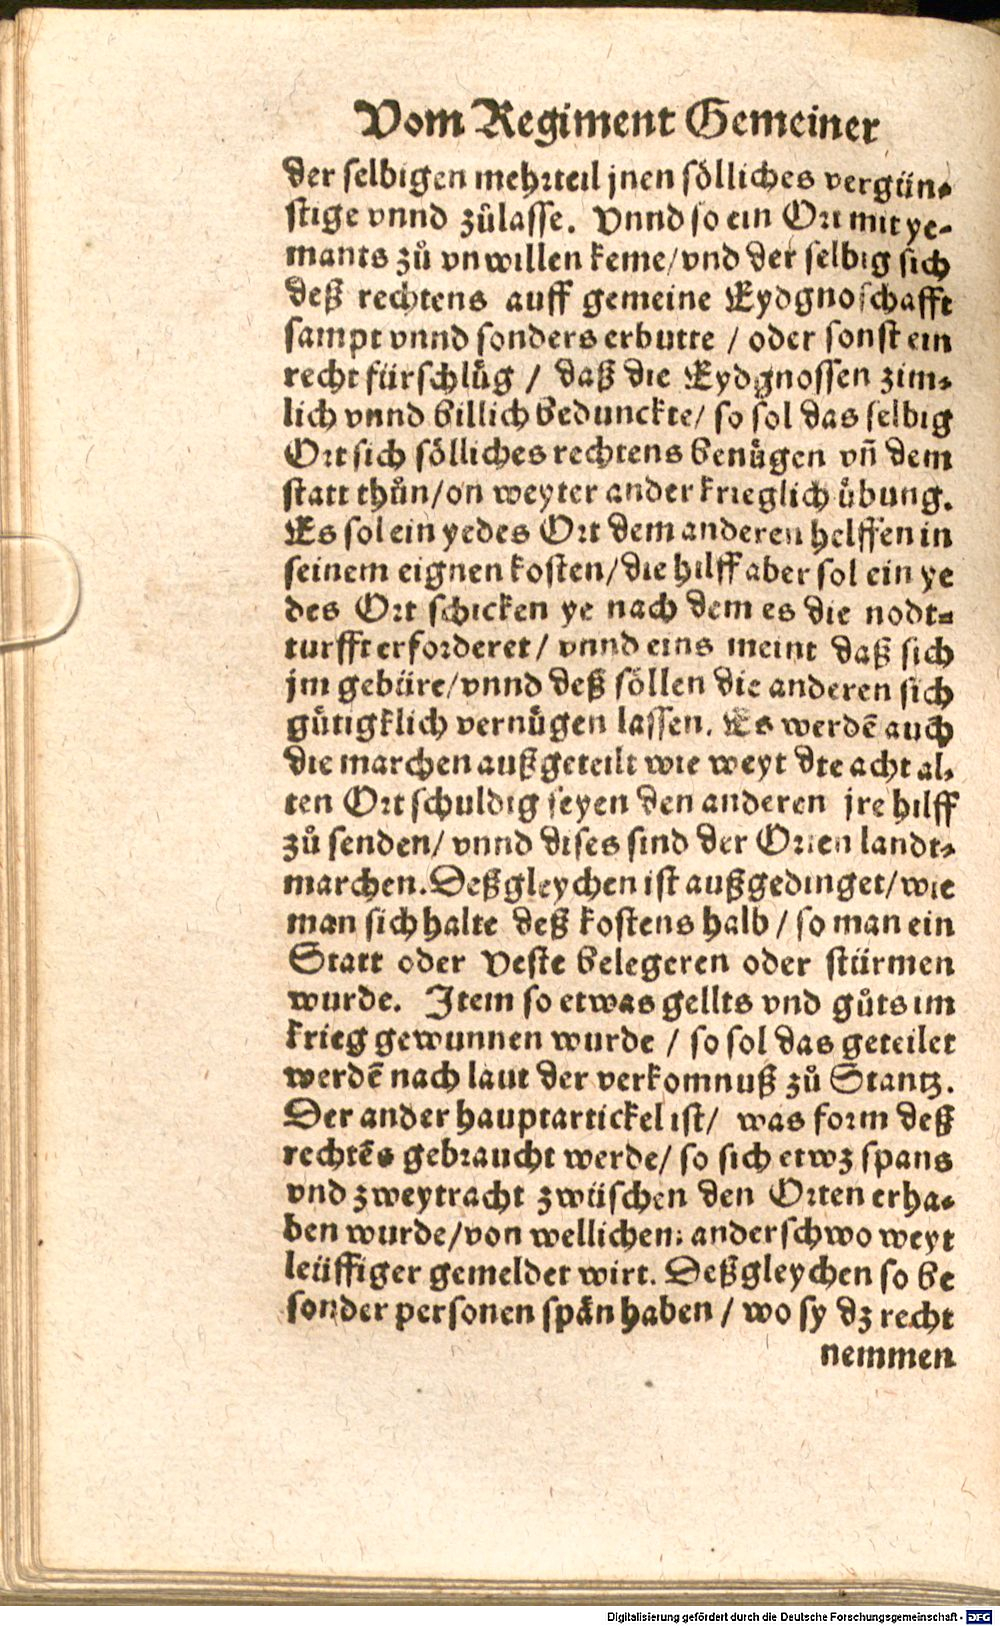 Vom Regiment Gemeiner
der selbigen mehrteil jnen sölliches vergün-
stige vnnd zůlasse. Vnnd so ein Ort mit ye-
mants zů vnwillen keme/vnd der selbig sich
deß rechtens auff gemeine Eydgnoschafft
sampt vnnd sonders erbutte / oder sonst ein
recht fürschlůg / daß die Eydgnossen zim-
lich vnnd billich bedunckte/ so sol das selbig
Ort sich sölliches rechtens benůgen vñ dem
statt thůn/on weyter ander krieglich übung.
Es sol ein yedes Ort dem anderen helffen in
seinem eignen kosten/die hilff aber sol ein ye
des Ort schicken ye nach dem es die nodt-
turfft erforderet/ vnnd eins meint daß sich
jm gebüre/vnnd deß söllen die anderen sich
gůtigklich vernůgen lassen. Es werdē auch
die marchen außgeteilt wie weyt dte acht al-
ten Ort schuldig seyen den anderen jre hilff
zů senden/ vnnd dises sind der Orten landt-
marchen. Deßgleychen ist außgedinget/wie
man sich halte deß kostens halb / so man ein
Statt oder Veste belegeren oder stürmen
wurde. Item so etwas gellts vnd gůts im
krieg gewunnen wurde / so sol das geteilet
werdē nach laut der verkomnuß zů Stantz.
Der ander hauptartickel ist/ was form deß
rechtēs gebraucht werde/ so sich etwz spans
vnd zweytracht zwüschen den Orten erha-
ben wurde/von wellichem anderschwo weyt
leüffiger gemeldet wirt. Deßgleychen so be
sonder personen spän haben / wo sy dz recht
nemmen
Digitalisierung gefördert durch die Deutsche Forschungsgemeinschaft - DFG